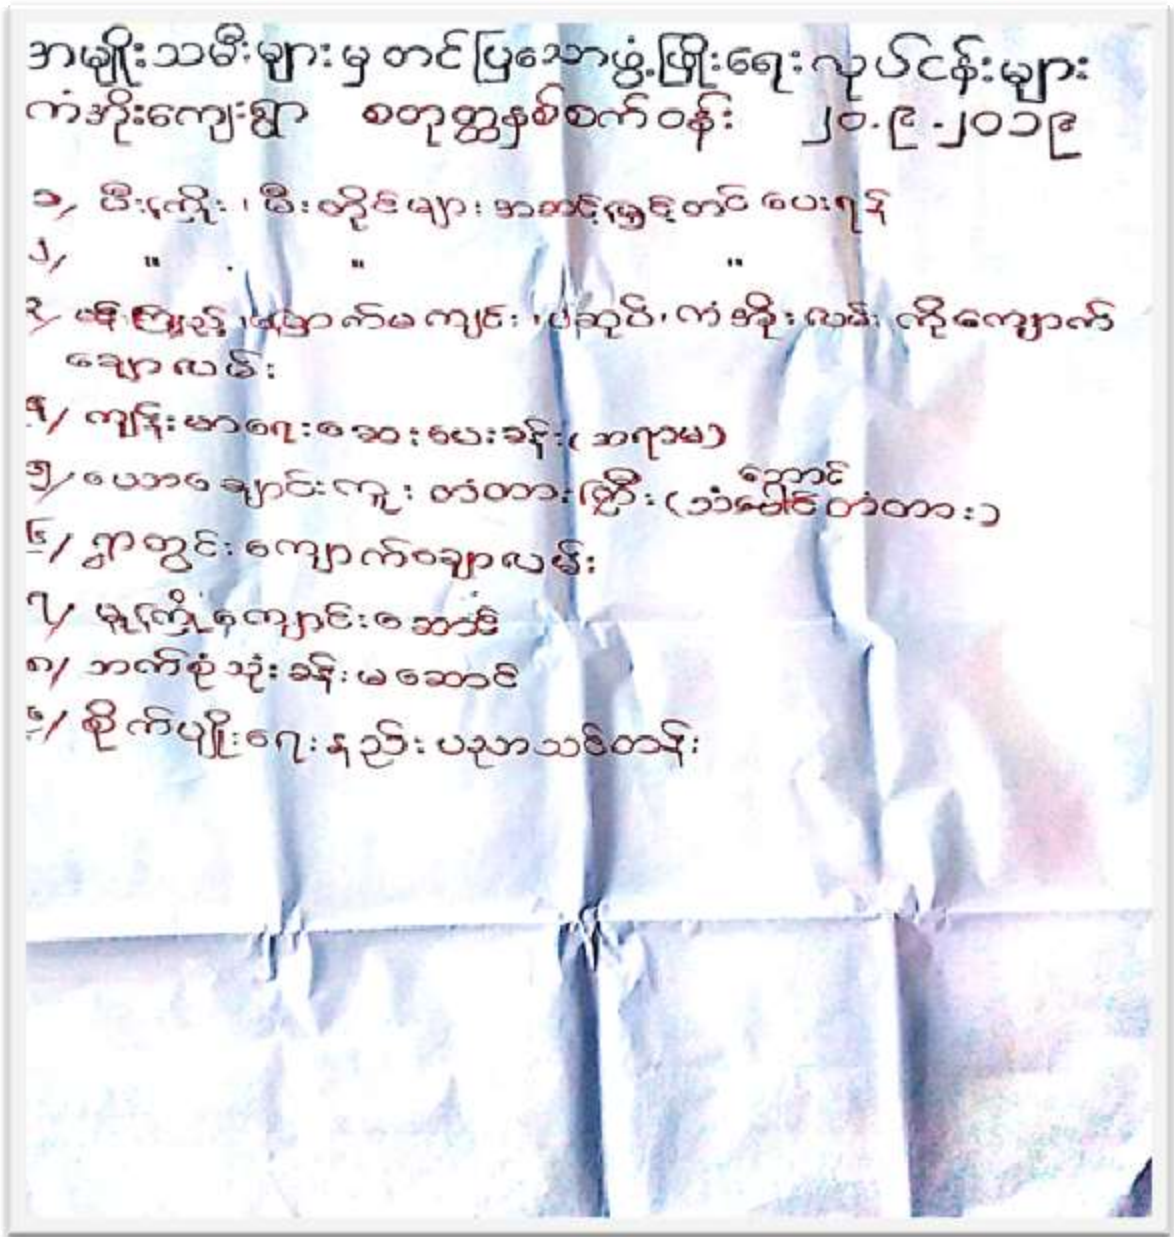 အမျိုးသမီးများမှ တင်ပြသောဖွံ့ဖြိုးရေး လုပ်ငန်းများ
ကံအိုးကျေးရွာ စတုတ္ထနှစ်စက်ဝန်း ၂၀.၉.၂၀၁၉
၁/ မီးကြိုး၊ မီးတိုင်များ အဆင့်မြှင့်တင် ပေးရန်
၂/ " . " "
၃/ မြောက်မကျင်း၊ ကံအိုးလမ်း ကိုကျောက်
ချောလမ်း
၄/ ကျန်းမာရေးဆေးပေးခန်း (ဘရာမ)
၅/ ယောချောင်းကူး တံတားကြီး (သံဘောင် တံတား)
၆/ ရွာတွင်းကျောက်ချောလမ်း
၇/ မူကြိုကျောင်းဆောင်
၈/ ဘက်စုံသုံးခန်းမဆောင်
၉/ စိုက်ပျိုးရေးနည်းပညာသင်တန်း